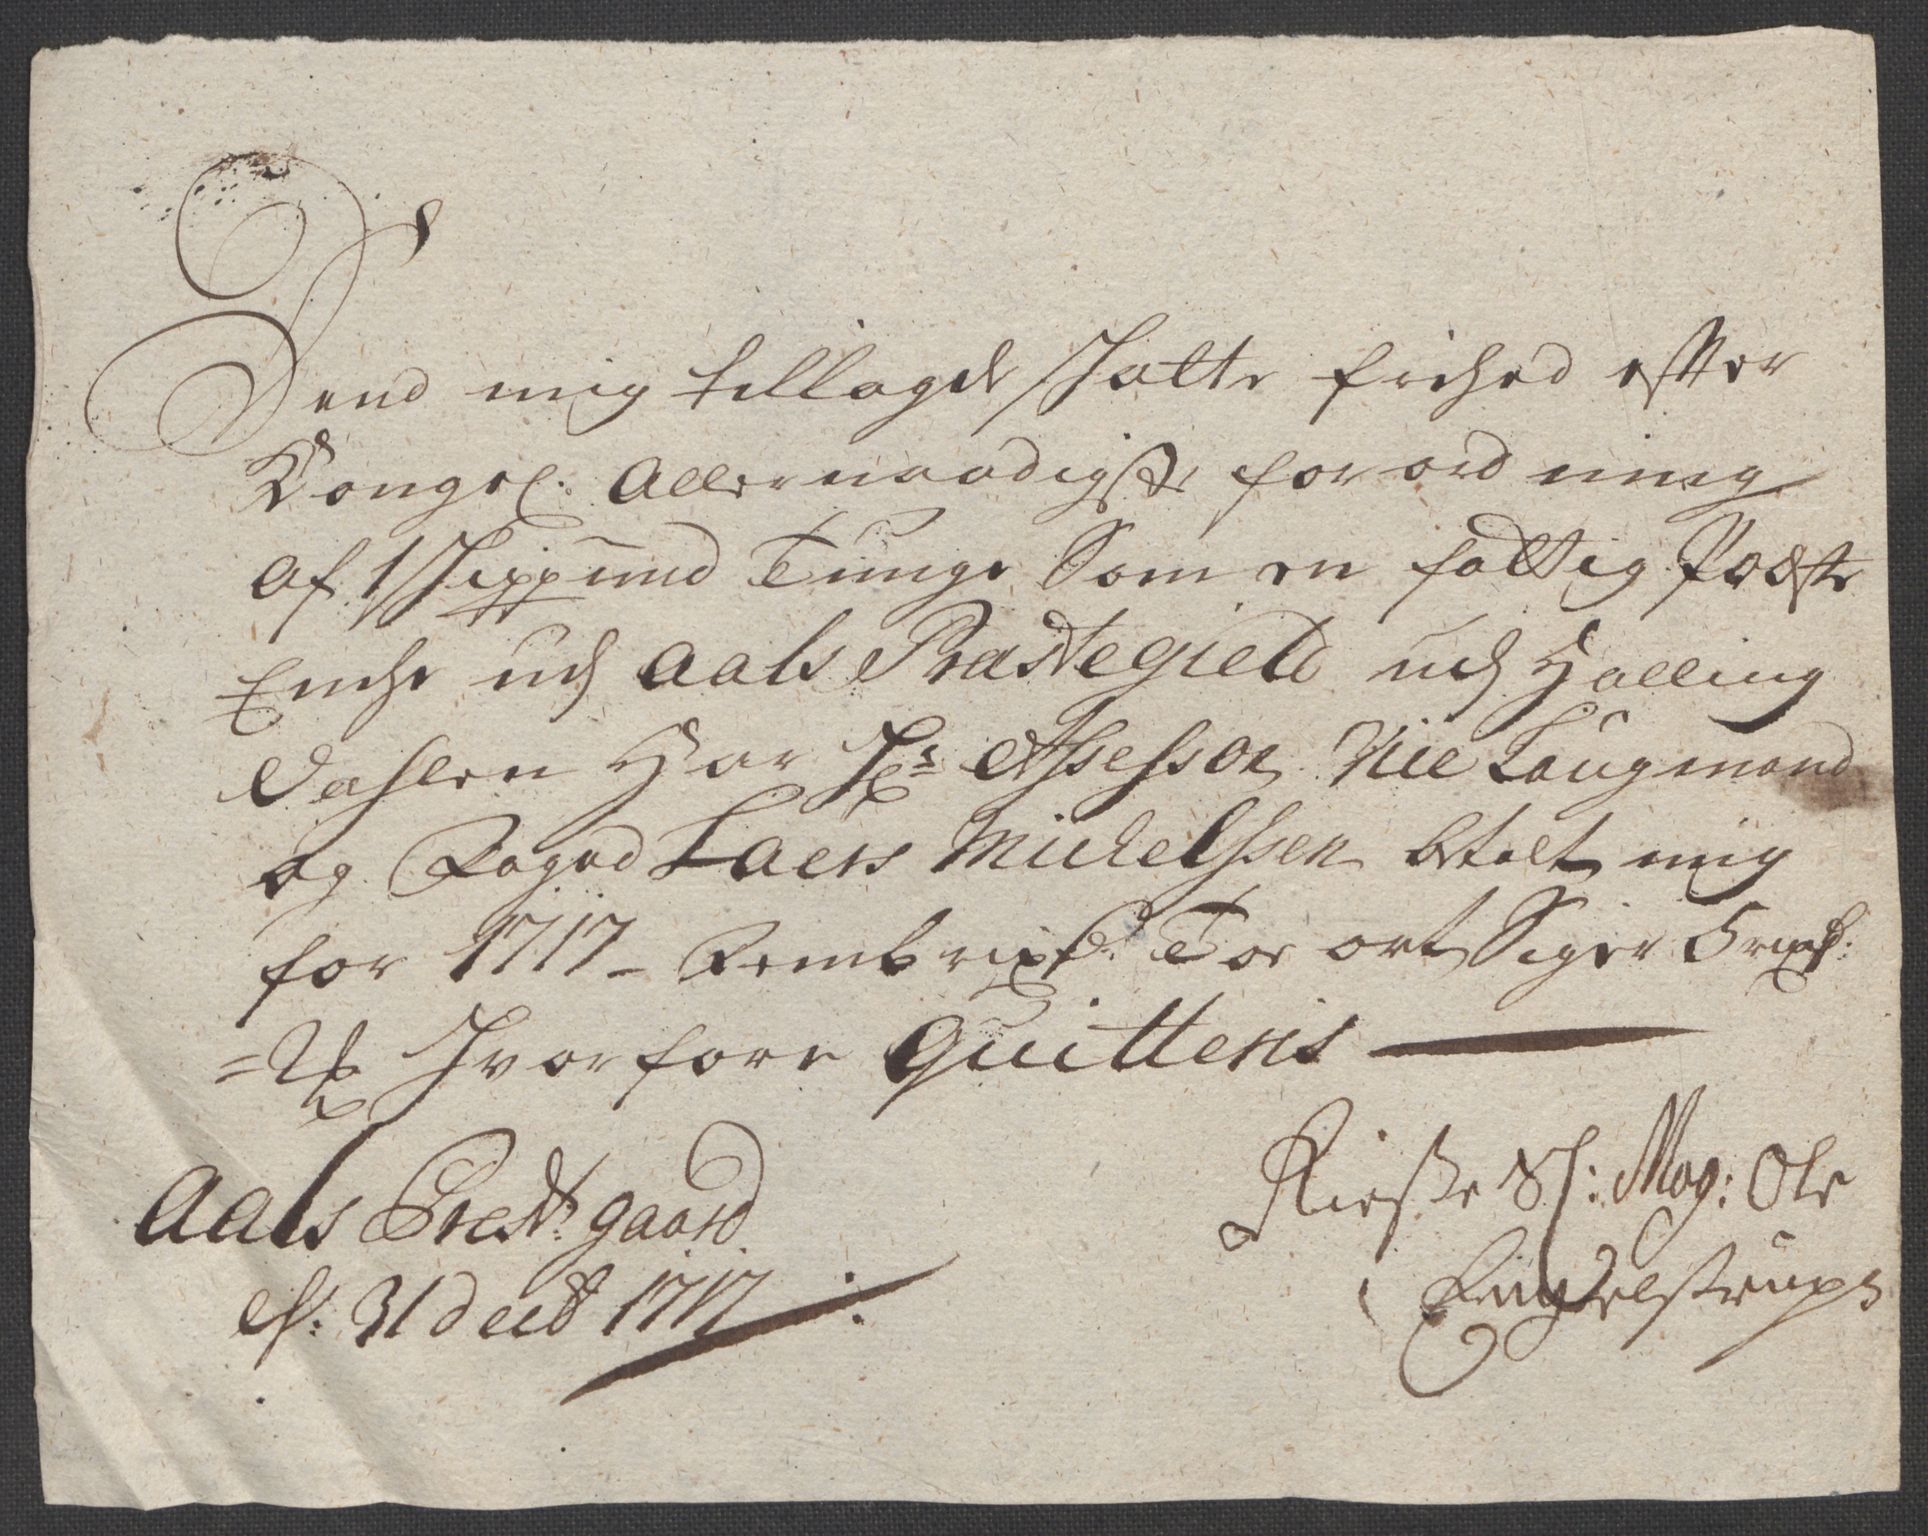 Dend mig tillagde Skatte friehed effter
Kongel: Allernaadigste forordning
af 1 Skippund Tunge Som en fattig Præste
Enche udj Aals Præstegield udj Halling
dahlen Har Hr: Assessor Vice Laugmand
og Foged Laers Michelssen betalt mig
for 1717 - Fembrixd: Toe ort Siger 5 rixd:
= 2 ₰ Hvorfore quitteris
Aals Prest: gaard
d: 31 decbr 1717
Sl: Mag: Ole
Engelstrups